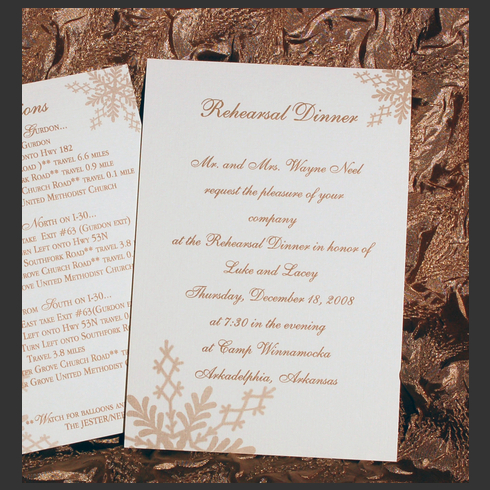 ions
Gurdon...
Gurdon
onto Hwy 182
Road )** travel 6.6 miles
Southfork Road** travel 0.9 mile
Church Road** travel 0.1 mile
United Methodist Church
North on I-30...
take Exit #63 (Gurdon exit)
Left onto Hwy 53N
Southfork Road** travel 3.8
Grove Church Road** travel
Grove United Methodist Church
From South on I-30...
East take Exit #63(Gurdon
Turn Left onto Hwy 53N
Travel 3.8 miles
Grove Church Road**
Grove United Methodist
**Watch for balloons and
The JESTER/NEE
Rehearsal Dinner
Mr. and Mrs. Wayne Neel
request the pleasure of your
company
at the Rehearsal Dinner in honor of
Luke and Lacey
Thursday, December 18, 2008
at 7:30 in the evening
at Camp Winnamocka
Arkadelphia, Arkansas